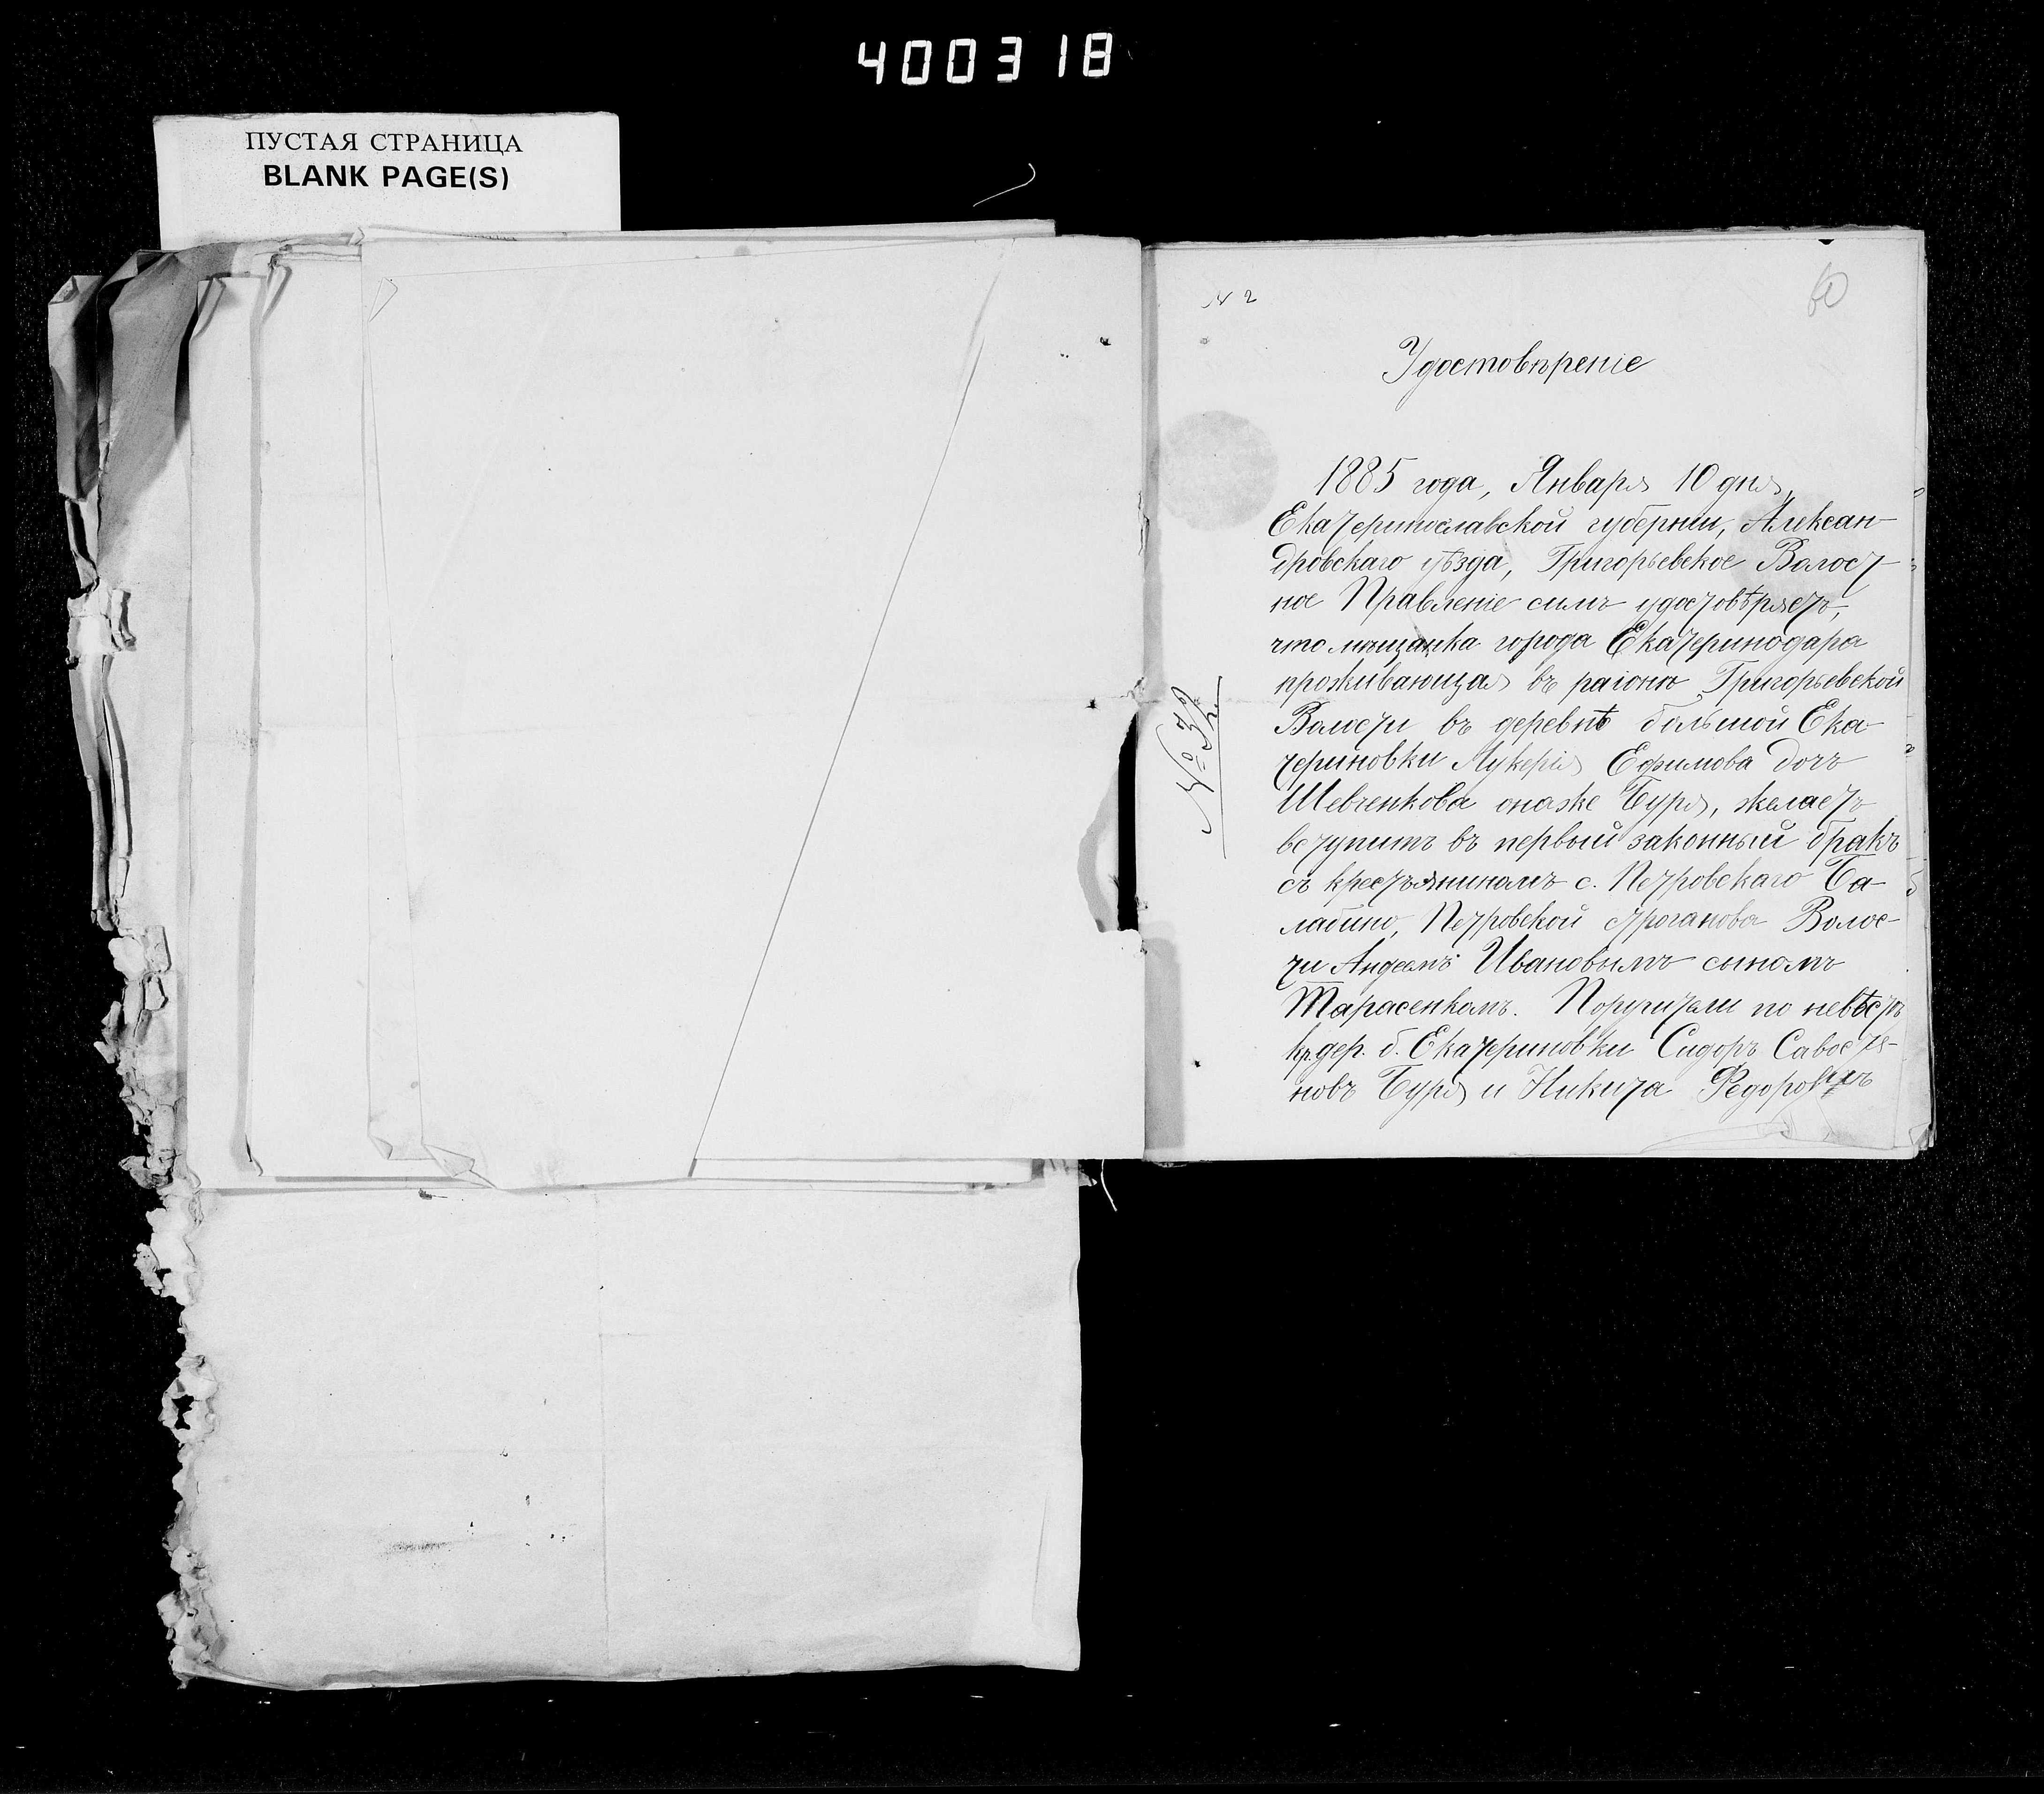 400318
ПУСТАЯ СТРАНИЦА
BLANK PAGE(S)
N 2
60
Удостовѣреніе
1885 года, Января 10 дня,
Екатеринославской губерніи, Алексан-
дровскаго уѣзда, Григорьевское Волост-
ное Правленіе симъ удостовѣряетъ,
что мѣщанка города Екатеринодара
проживающая въ раіонѣ Григорьевской
Волости въ деревнѣ большой Ека-
териновки Лукерія Ефимова дочъ
Шевченкова онаже Буря, желаетъ
вступитъ въ первый законный бракъ
съ крестьяниномъ с. Петровскаго Ба-
лабино, Петровской Строганова Волос-
ти Андеемъ Ивановымъ сыномъ
Тарасенкомъ. Поручители по невѣстѣ
кр. дер. б. Екатериновки Сидоръ Савостя-
новъ Буря и Никита Федоровичъ
№ 32